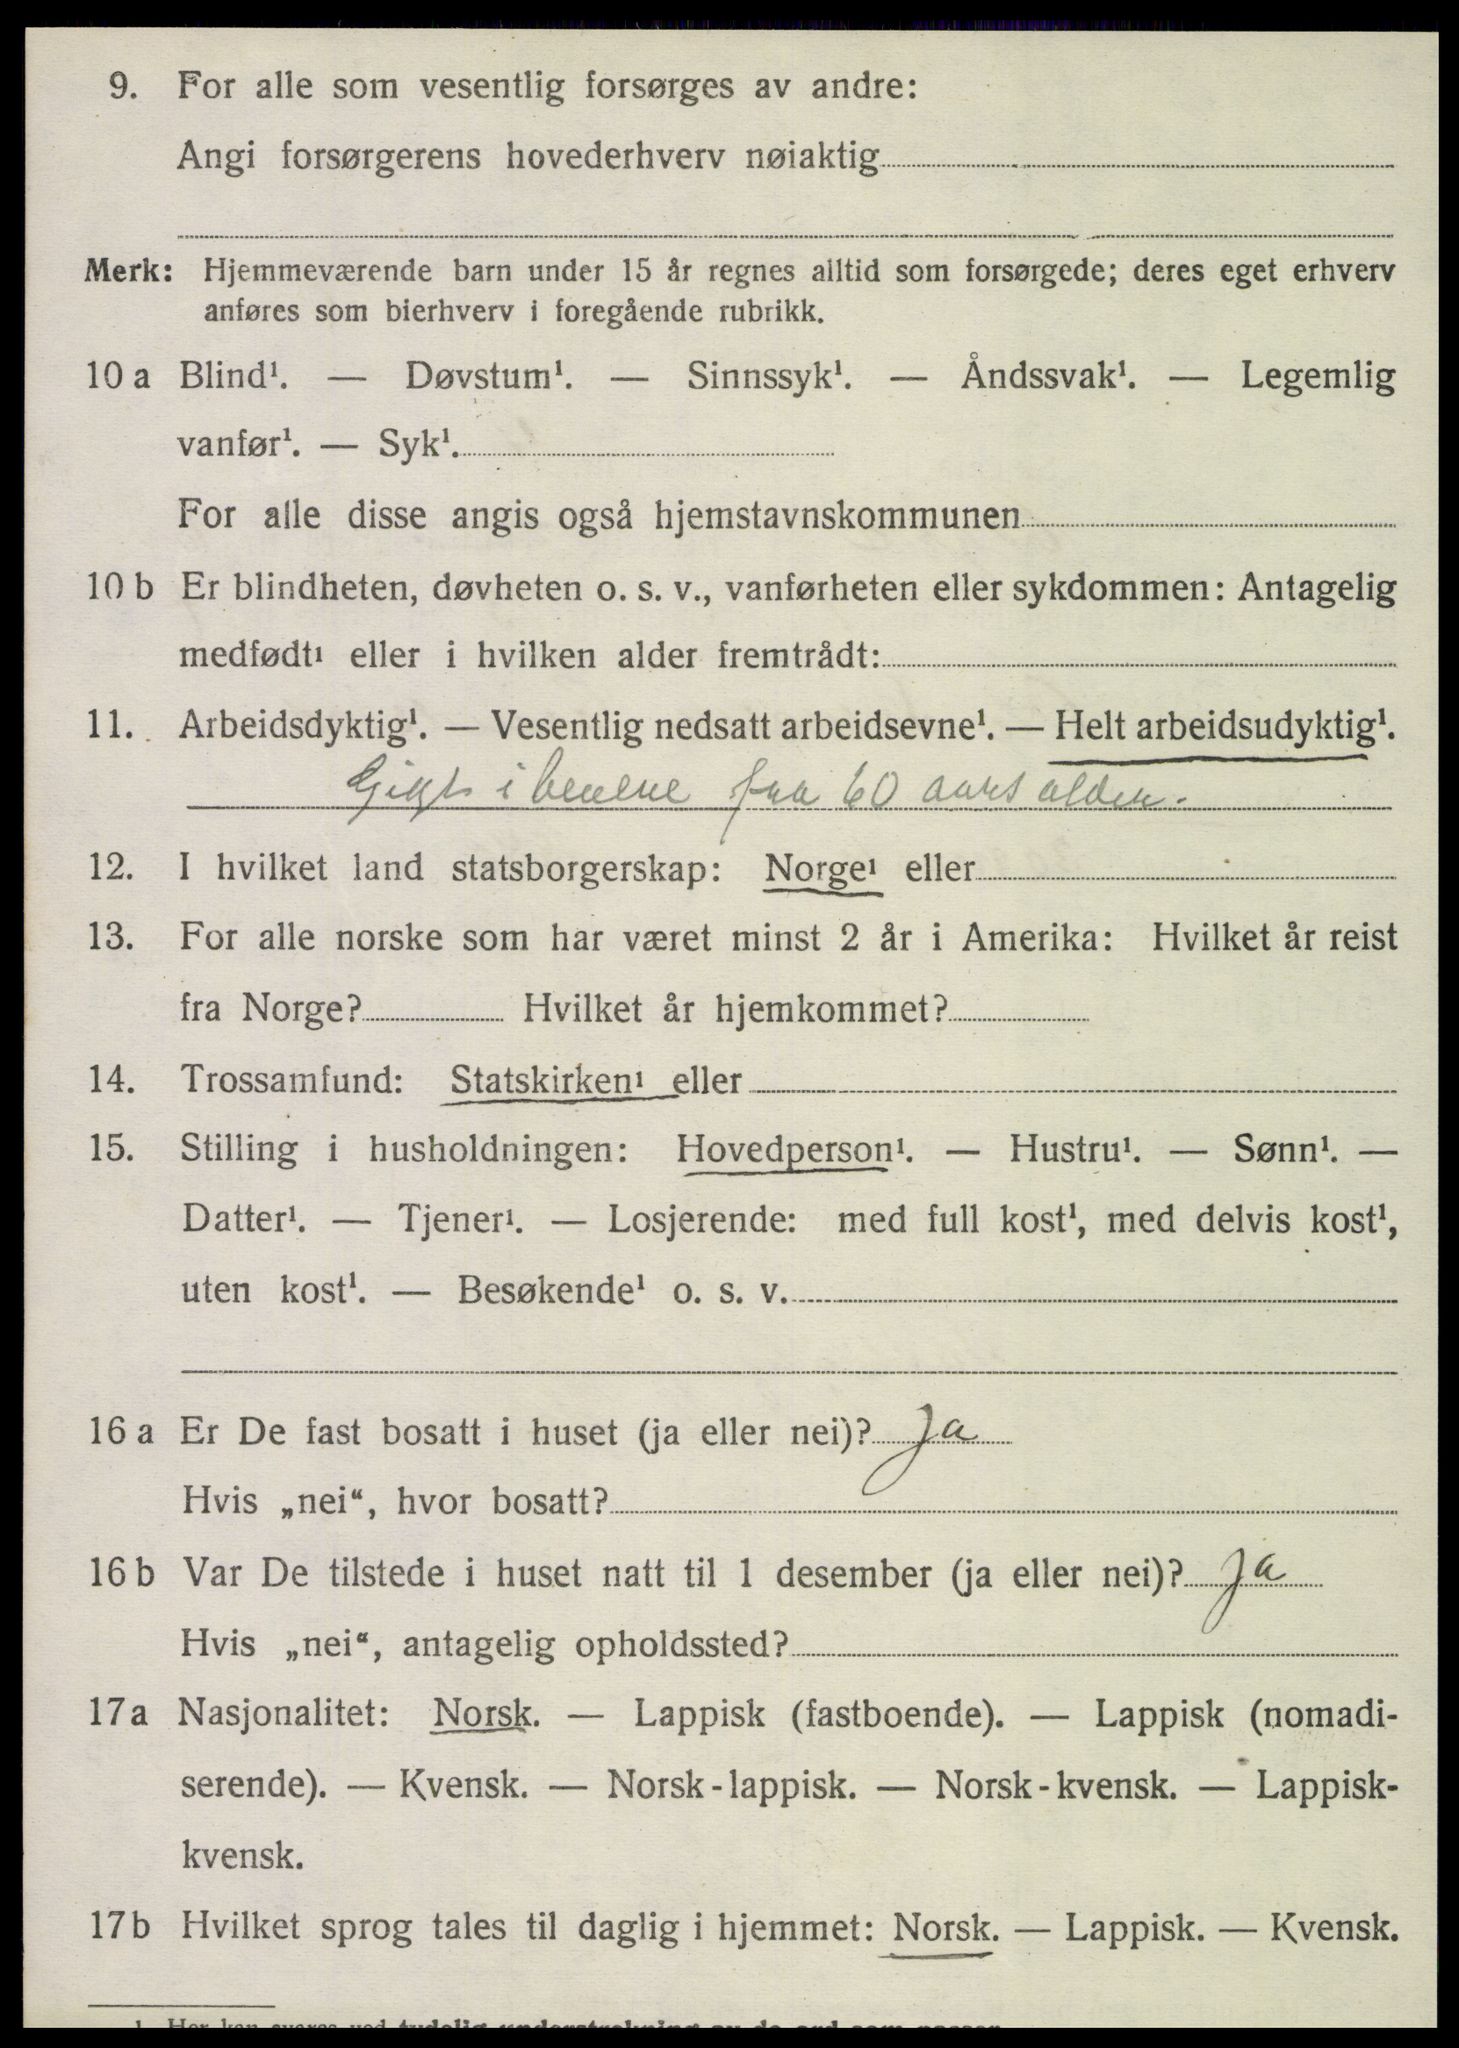 9. For alle som vesentlig forsørges av andre:
Angi forsørgerens hovederhverv nøiaktig
Merk: Hjemmeværende barn under 15 år regnes alltid som forsørgede; deres eget erhverv
anføres som bierhverv i foregående rubrikk.
10 a Blind¹. — Døvstum¹. — Sinnssyk¹. — Åndssvak¹. — Legemlig
vanfør¹. — Syk¹.
For alle disse angis også hjemstavnskommunen
10 b Er blindheten, døvheten o. s. v., vanførheten eller sykdommen: Antagelig
medfødt¹ eller i hvilken alder fremtrådt:
11. Arbeidsdyktig¹. — Vesentlig nedsatt arbeidsevne¹. — Helt arbeidsudyktig¹.
Gigt i benene fra 60 aars alder.
12. I hvilket land statsborgerskap: Norge¹ eller
13. For alle norske som har været minst 2 år i Amerika: Hvilket år reist
fra Norge? Hvilket år hjemkommet?
14. Trossamfund: Statskirken¹ eller
15. Stilling i husholdningen: Hovedperson¹. — Hustru¹. — Sønn¹. —
Datter¹. — Tjener¹. — Losjerende: med full kost¹, med delvis kost¹,
uten kost¹. — Besøkende¹ o. s. v.
16 a Er De fast bosatt i huset (ja eller nei)? Ja
Hvis „nei“, hvor bosatt?
16 b Var De tilstede i huset natt til 1 desember (ja eller nei)? Ja
Hvis „nei“, antagelig opholdssted?
17 a Nasjonalitet: Norsk. — Lappisk (fastboende). — Lappisk (nomadi-
serende). — Kvensk. — Norsk-lappisk. — Norsk-kvensk. — Lappisk-
kvensk.
17 b Hvilket sprog tales til daglig i hjemmet: Norsk. — Lappisk. — Kvensk.
1 Her kan svares ved tydelig understrekning av de ord som passer.